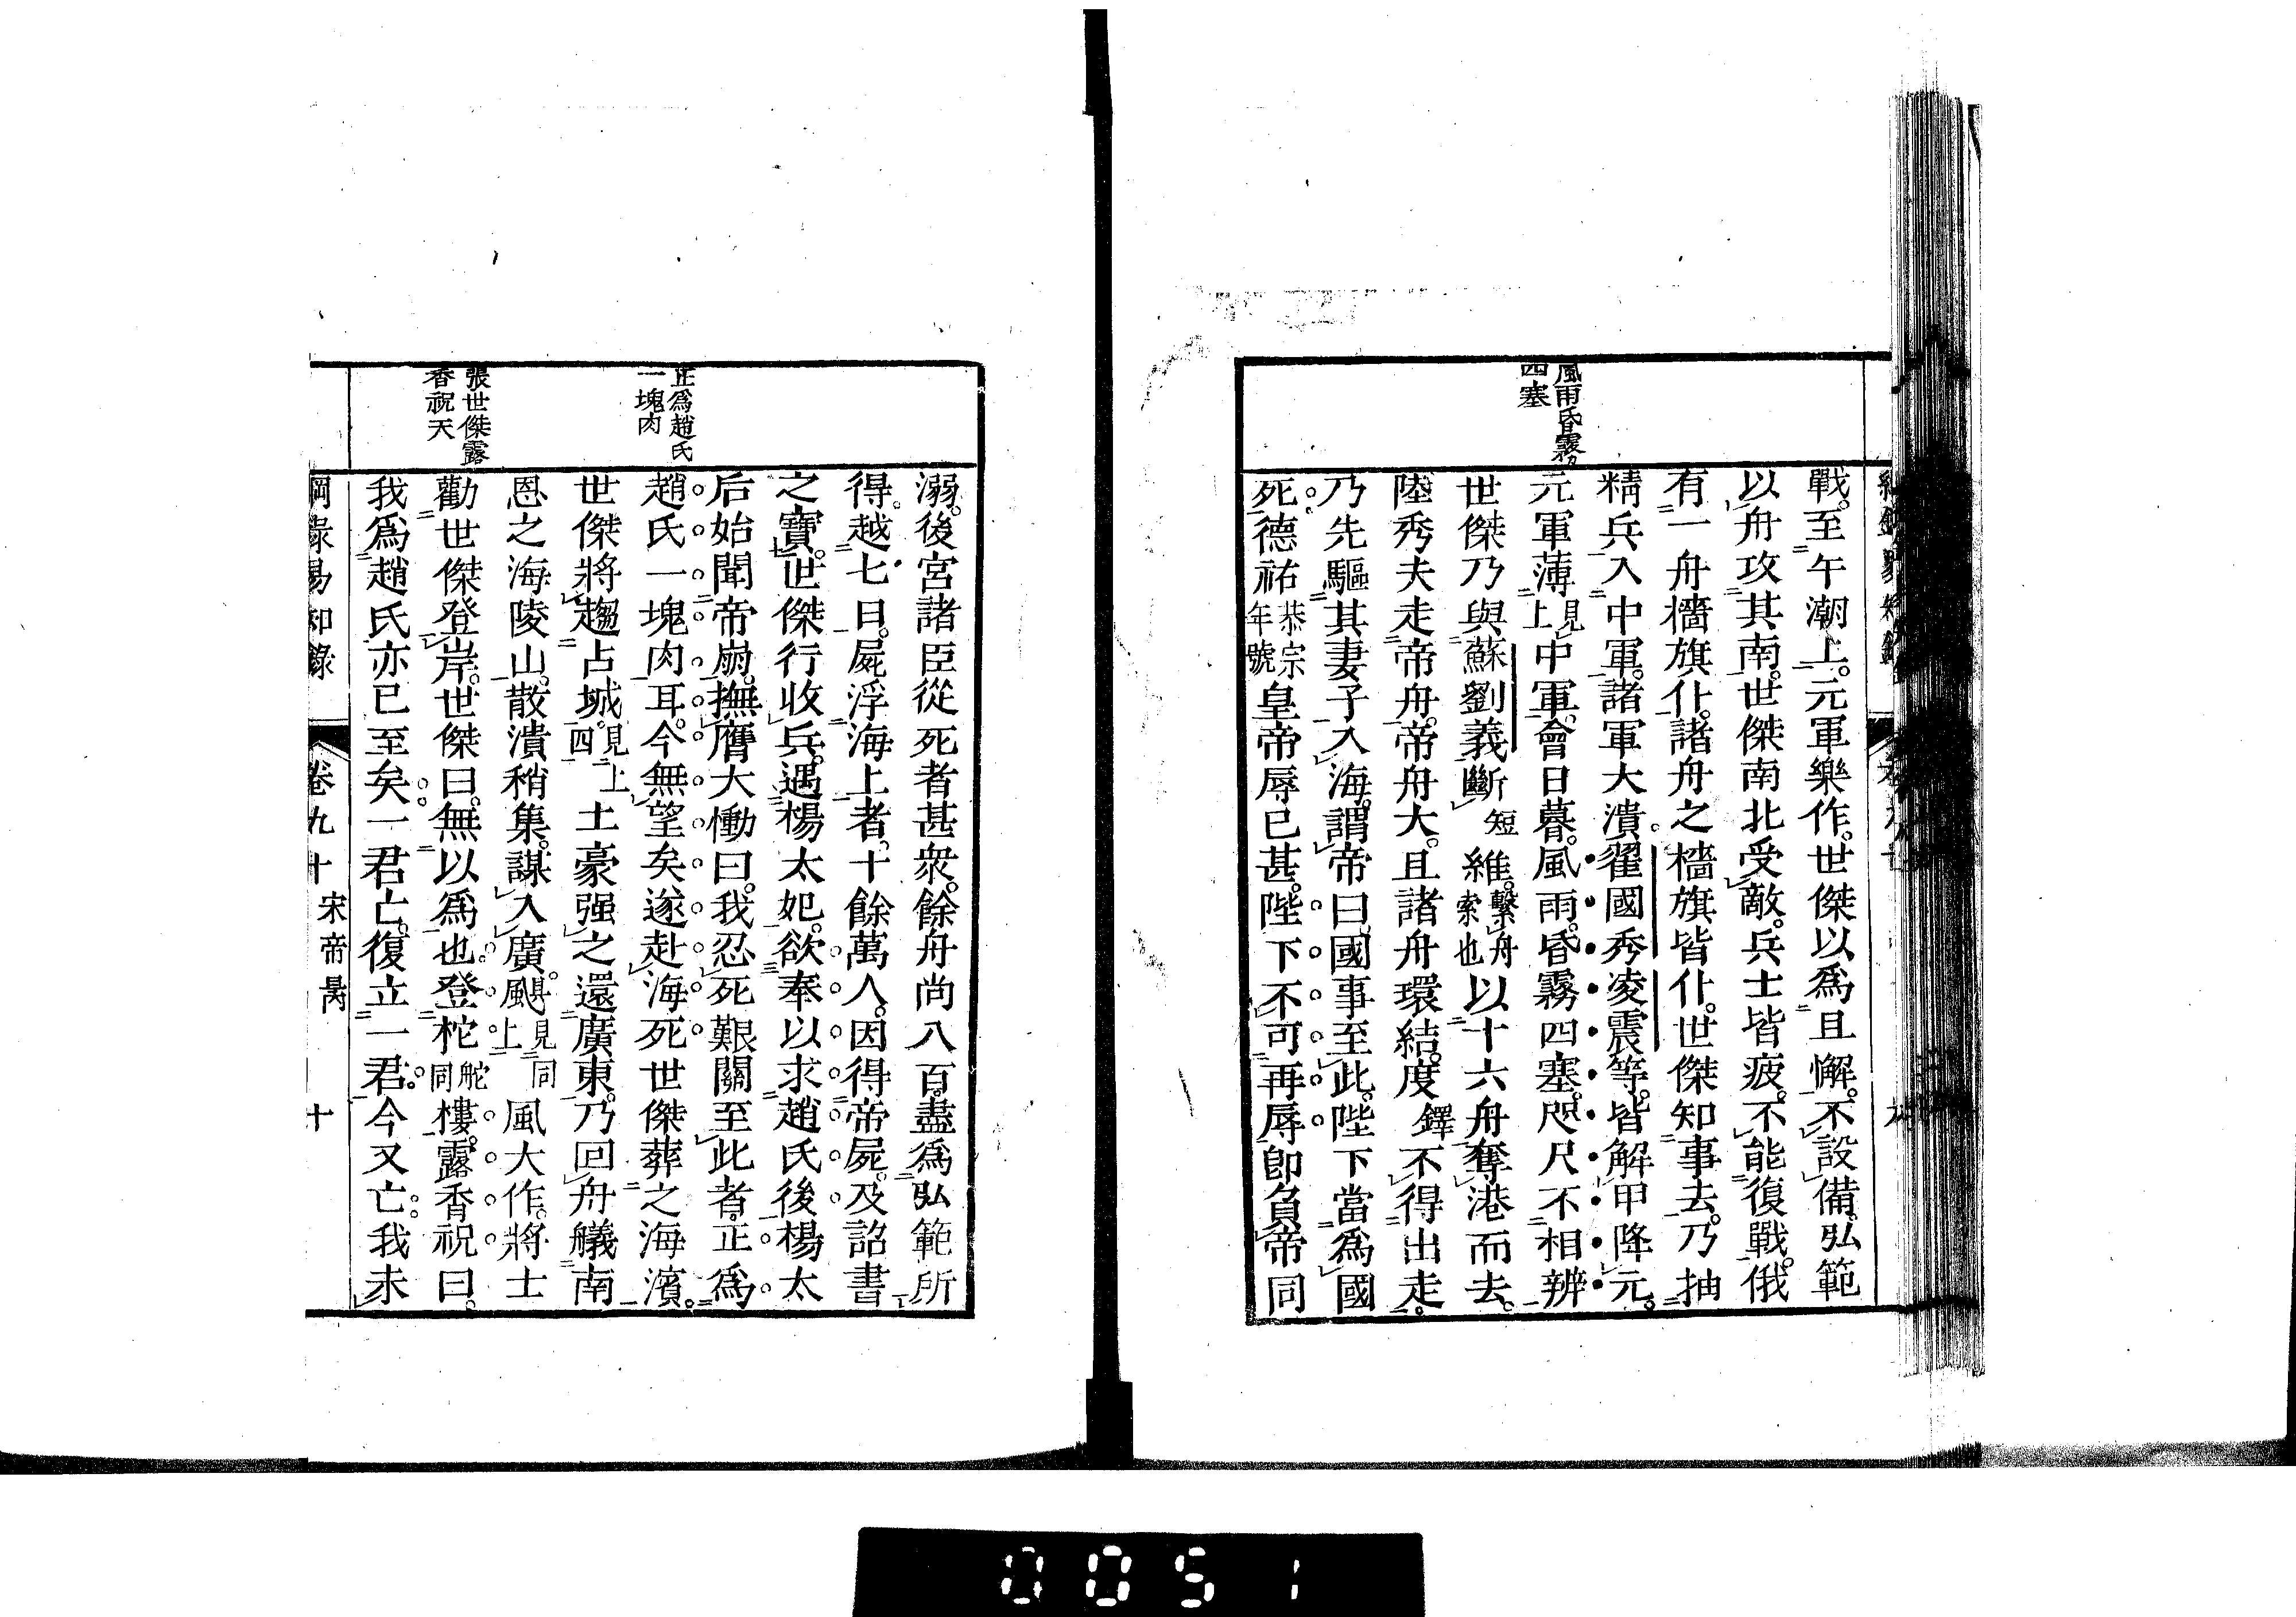 風雨昏霧
四塞
戰。至午潮上。元軍樂作。世傑以爲且懈。不設備。弘範
以舟攻其南。世傑南北受敵。兵士皆疲。不能復戰。俄
有一舟檣旗仆。諸舟之檣旗皆仆。世傑知事去。乃抽
精兵入中軍。諸軍大潰。翟國秀凌震等。皆解甲降元。
元軍薄見上中軍。會日暮。風雨。昏霧四塞。咫尺不相辨
世傑乃與蘇劉義斷短維。繫舟索也以十六舟奪港而去。
陸秀夫走帝舟。帝舟大。且諸舟環結。度鐸不得出走。
乃先驅其妻子入海。謂帝曰。國事至此。陛下當爲國
死。德祐恭宗年號皇帝辱已甚。陛下不可再辱。卽負帝同
正爲趙氏
一塊肉
張世傑露
香祝天
溺。後宮諸臣從死者甚衆。餘舟尚八百。盡爲弘範所
得。越七日。屍浮海上者。十餘萬人。因得帝屍。及詔書
之寶。世傑行收兵。遇楊太妃。欲奉以求趙氏後楊太
后始聞帝崩。撫膺大慟曰。我忍死艱關至此者。正爲
趙氏一塊肉耳。今無望矣。遂赴海死世傑葬之海濱。
世傑將趨占城。見上四土豪强之還廣東。乃回舟艤南
恩之海陵山。散潰稍集。謀入廣。颶見上同風大作。將士
勸世傑登岸。世傑曰。無以爲也。登柁舵同樓。露香祝曰。
我爲趙氏亦已至矣。一君亡。復立一君。今又亡。我未
綱鑑易知錄 卷九十 宋帝昺 十
0051